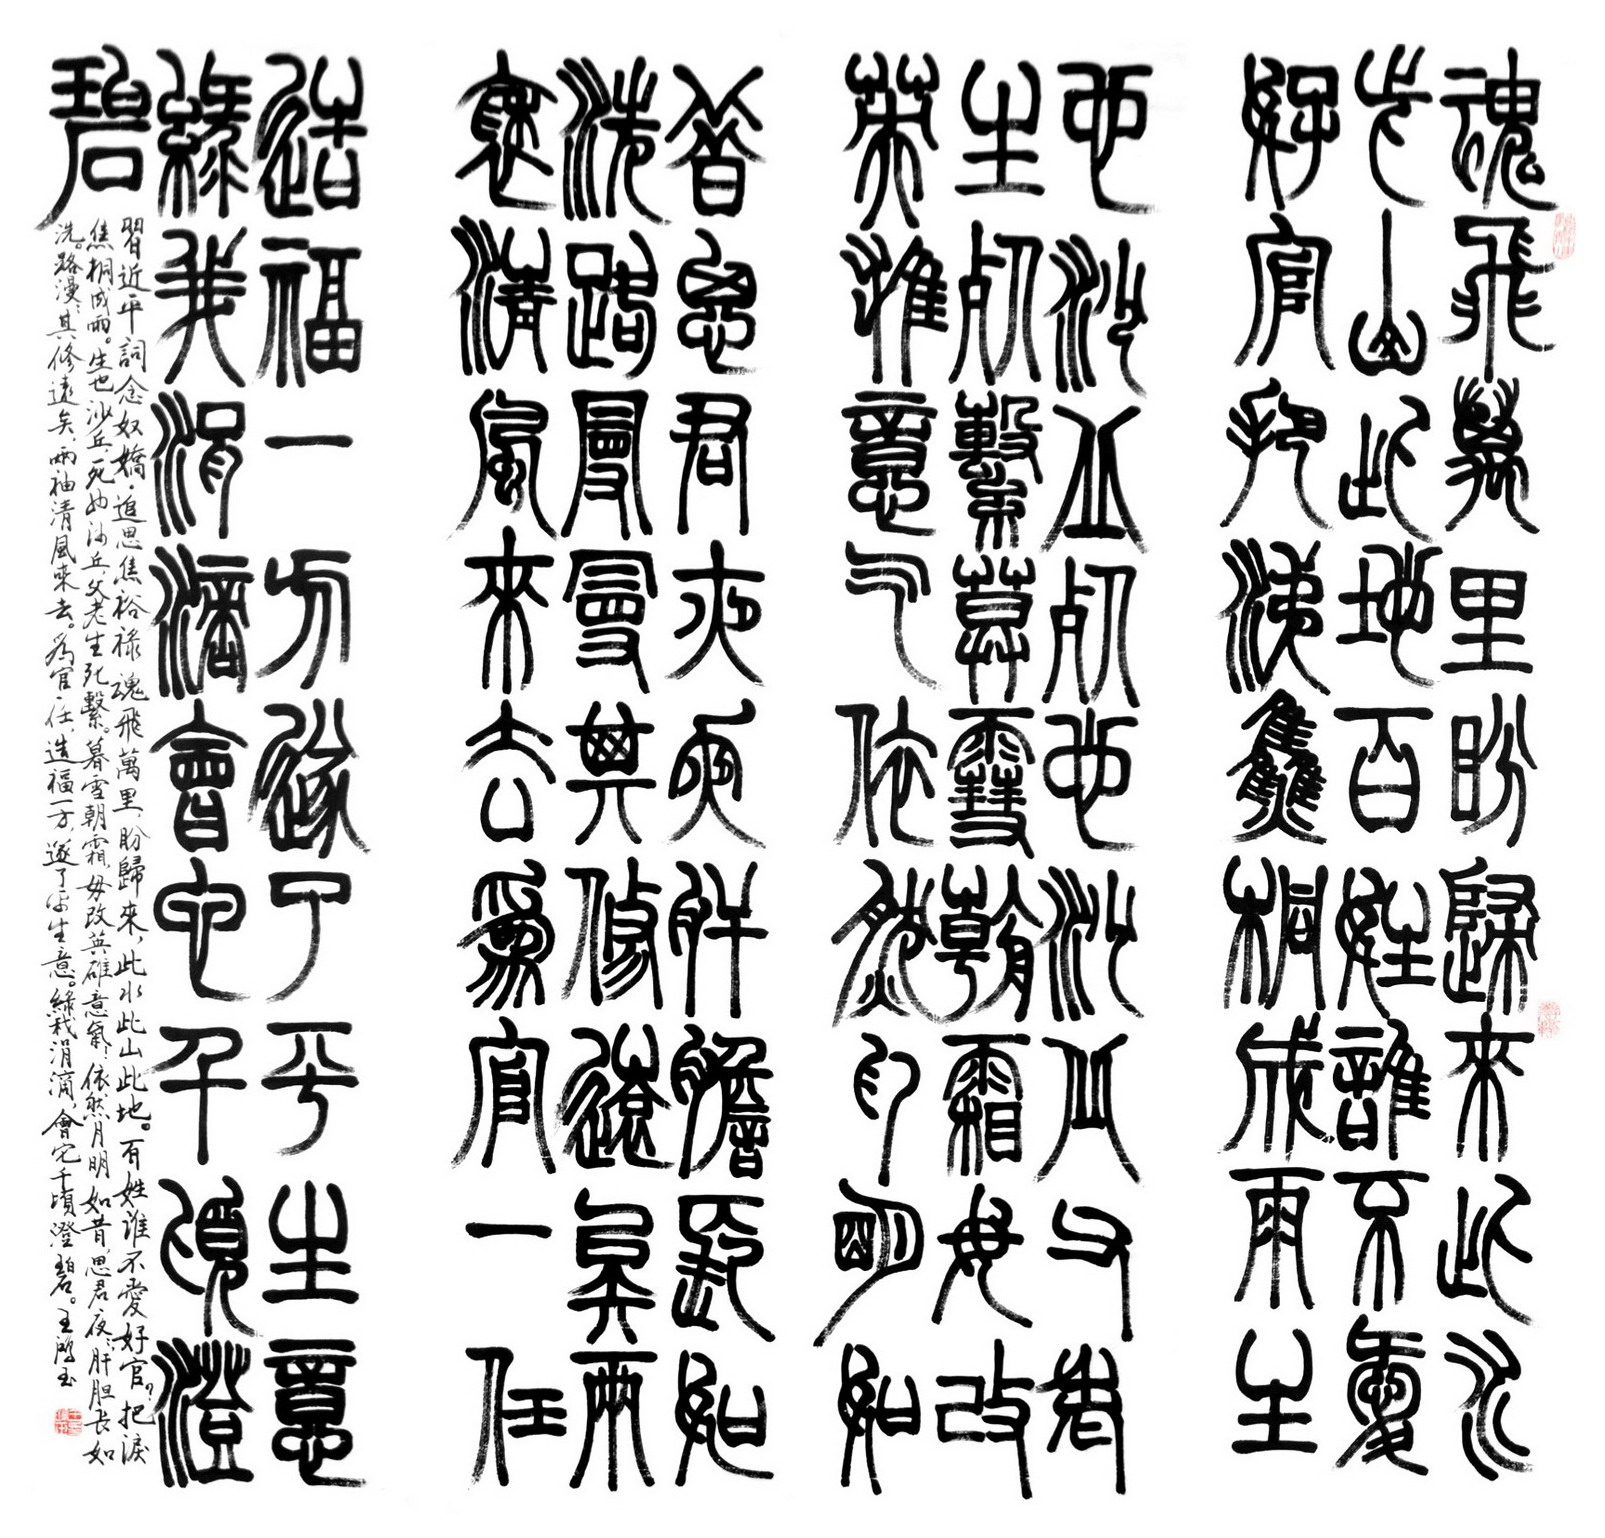 魂飛萬里盼歸來此水
此山此地百姓誰不愛
好官把淚焦桐成雨生
也沙丘死也沙丘父老
生死繫暮雪朝霜毋改
英雄意气依然月明如
昔思君夜夜肝膽長如
洗路漫漫其修遠矣兩
袖清風來去爲官一任
造福一方遂了平生意
綠我涓滴會它千頃澄
碧
習近平詞念奴嬌·追思焦裕祿 魂飛萬里,盼歸來,此水此山此地。百姓誰不愛好官?把淚
焦桐成雨。生也沙丘,死也沙丘,父老生死繫。暮雪朝霜,毋改英雄意氣!依然月明如昔,思君夜々,肝胆长如
洗。路漫々其修遠矣,兩袖清風來去。爲官一任,造福一方,遂了平生意。綠我涓滴,會它千頃澄碧。王